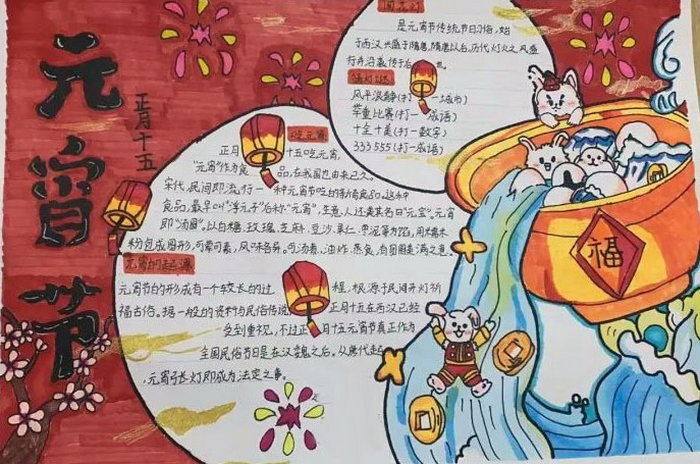 元宵节
正月十五
是元宵节传统节日习俗,始
于西汉,兴盛于隋唐,隋唐以后,历代灯火之风盛
行,并沿袭传于后
猜灯谜
风平浪静(打一城市)
举重比赛(打一成语)
十全十美(打一数字)
333 555(打一成语)
吃元宵
正月十五吃元宵,
“元宵”作为食品,在我国也由来已久。
宋代,民间即流行一种元宵节吃的新奇食品。这种
食品,最早叫“浮元子”后称“元宵”,生意人还美其名曰“元宝”。元宵
即“汤圆”。以白糖、玫瑰、芝麻、豆沙、果仁、枣泥等为馅,用糯米
粉包成圆形,可荤可素,风味各异。可汤煮、油炸、蒸食,有团圆美满之意。
元宵的起源
元宵节的形成有一个较长的过程,根源于民间开灯祈
福古俗。据一般的资料与民俗传说,正月十五在西汉已经
受到重视,不过正月十五元宵节真正作为
全国民俗节日是在汉魏之后。从唐代起
,元宵张灯即成为法定之事。
福